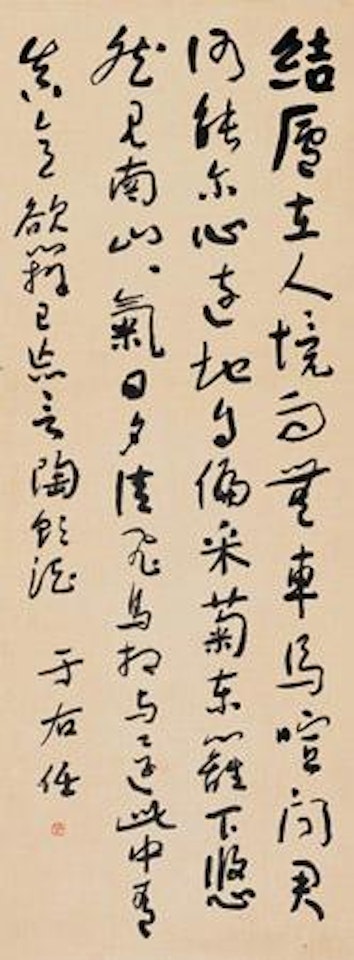 結廬在人境而無車馬喧問君
何能尔心遠地自偏采菊東籬下悠
然見南山〻氣日夕佳飛鳥相与還此中有
真意欲辨已忘言陶飲酒
于右任